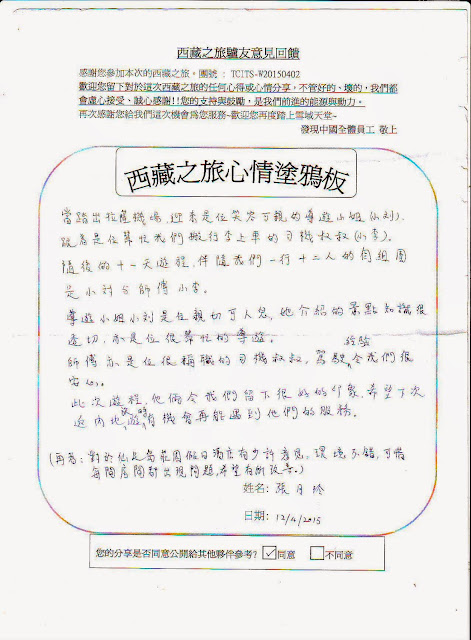 西藏之旅驢友意見回饋
感謝您參加本次的西藏之旅。團號：TCITS-W20150402
歡迎您留下對於這次西藏之旅的任何心得或心情分享，不管好的、壞的，我們都
會虛心接受、誠心感謝!!您的支持與鼓勵，是我們前進的能源與動力。
再次感謝您給我們這次機會為您服務~歡迎您再度踏上雪域天堂~
發現中國全體員工 敬上
西藏之旅心情塗鴉板
當踏出拉薩機場，迎來是位笑容可親的導遊小姐(小刘)，
跟著是位幫忙我們搬行李上車的司機叔叔(小李)。
隨後的十一天遊程，伴隨我們一行十二人的自組團
是小刘&師傅小李。
導遊小姐小刘是位親切可人兒，她介紹的景點知識很
透切，亦是位很幫忙的導遊。
師傅亦是位很稱職的司機叔叔，駕駛經驗令我們很
安心。
此次遊程，他倆令我們留下很好的印象，希望下次
返內地旅遊時有機會再能遇到他們的服務。
(再者：對於
莊園假日酒店有少許意見，環境不錯，可惜
每間房間都出現問題，希望有所改善。)
姓名: 張月玲
日期: 12/4/2015
您的分享是否同意公開給其他夥伴參考? ☑同意 □不同意